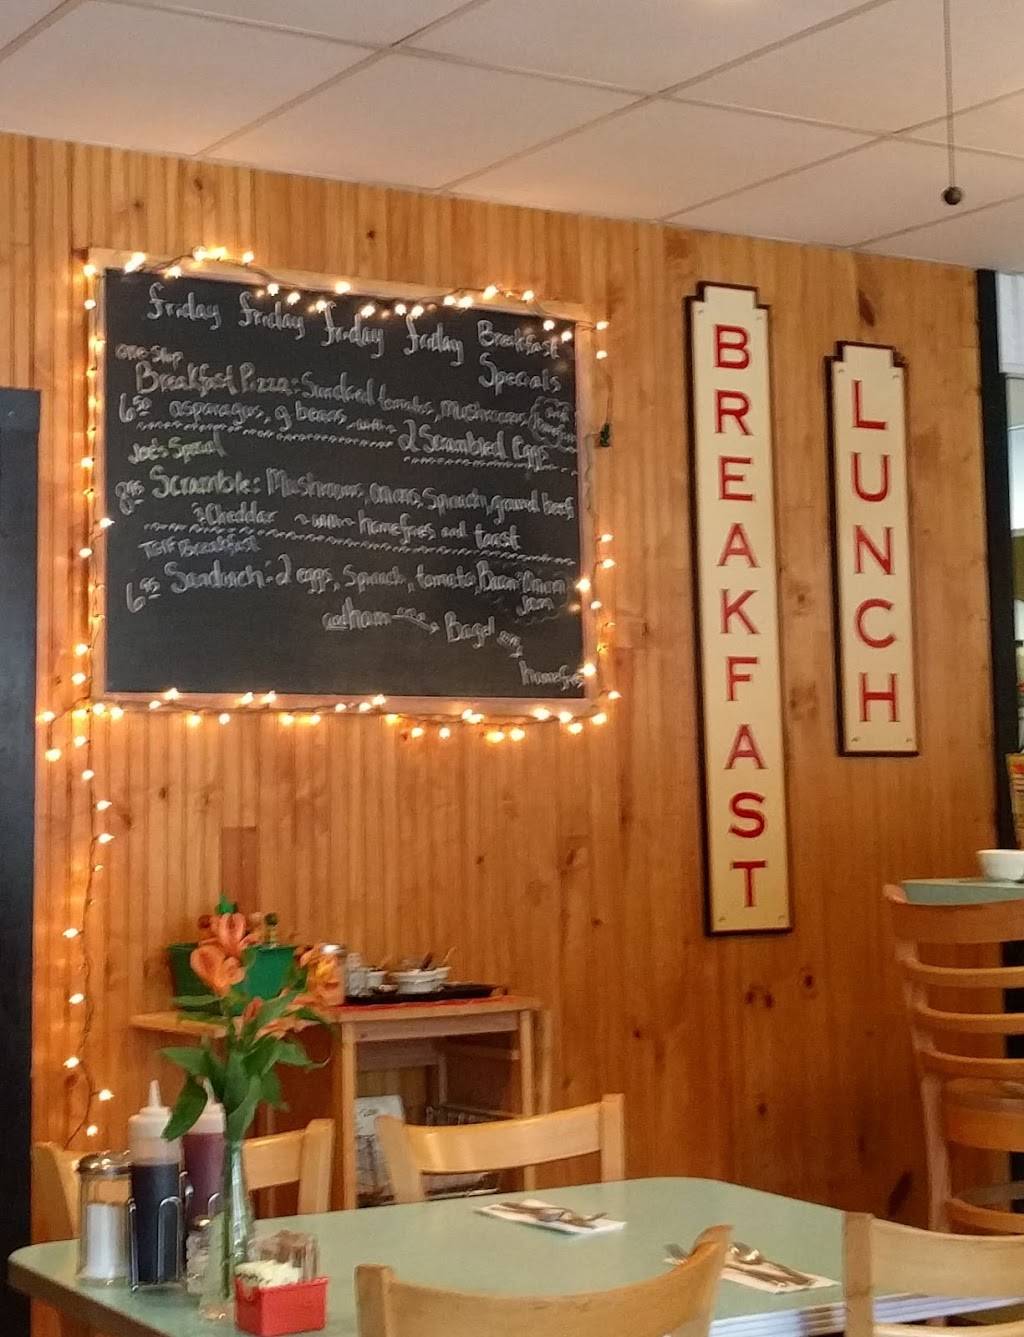 friday friday friday friday Breakfast
Specials
one-stop
Breakfast Pizza: Sundried tomatoes, mushrooms,
6.50 asparagus, g beans with
2 Scrambled Eggs
Joe's Special
8.95 Scramble: Mushrooms, onions, Spinach, ground beef
& Cheddar with homefries and toast
TGIF Breakfast
6.95 Sandwich: 2 eggs, Spinach, tomato, Bacon Onion
Jam
and ham on a Bagel
homefries
BREAKFAST
LUNCH